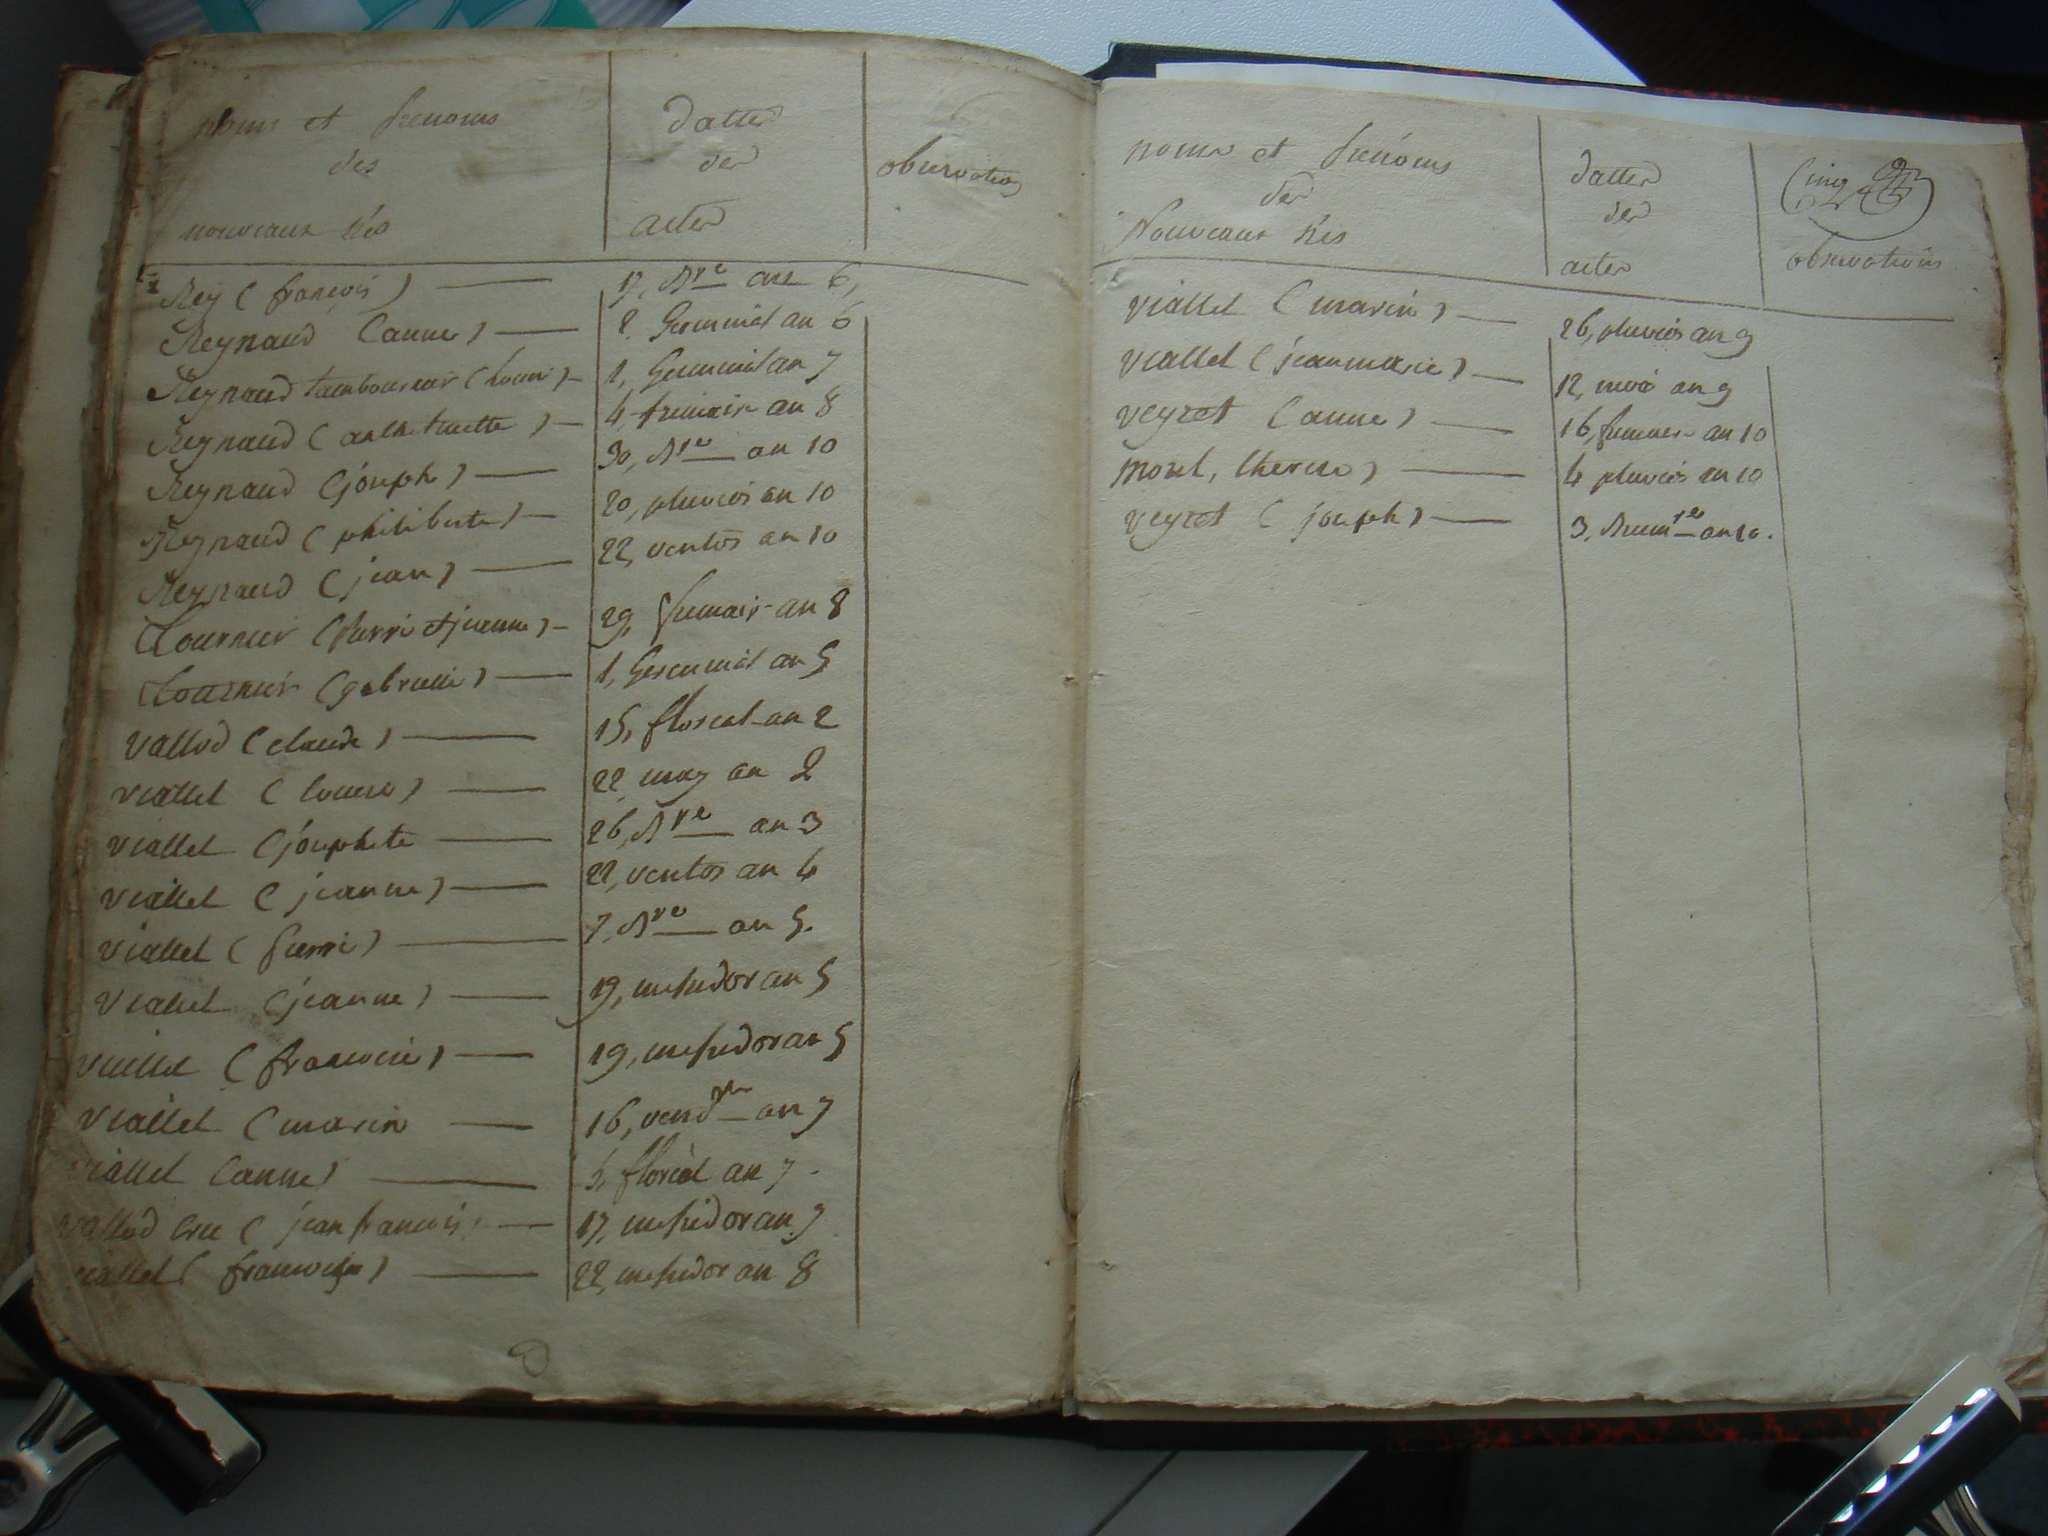 noms et prenoms
des
nouveaux nés
dattes
des
actes
observations
Rey (francois) 17, Bre an 6,
Reynaud (anne) 8 Germinal an 6
Reynaud tambourinair (louis) 1, Germinal an 7
Reynaud (anthelmette) 4, frimair an 8
Reynaud (joseph) 30, Bre an 10
Reynaud (philiberte) 20, pluvios an 10
Reynaud (jean) 22, ventos an 10
Tournier (pierre et jeanne) 29, frimair an 8
Tournier (gabrielle) 1, Germinal an 5
Vallod (claude) 15, floreal an 2
viallet (louise) 22 may an 2
viallet (josephete 26, Bre an 3
viallet (jeanne) 22, ventos an 4
viallet (pierre) 7, Bre an 5.
viallet (jeanne) 19, messidor an 5
viallet (francoise) 19, messidor an 5
viallet (marin 16, vendre an 7
viallet (anne) 5, floréal an 7.
vallod (jean francois) 17, messidor an 7
viallet (francoise) 22, messidor an 8
noms et prénoms
des
Nouveaux nés
dattes
des
actes
Cinq
observations
viallet (marin) 26, pluvios an 9
viallet (jean marie) 12, nivo an 9
veyret (anne) 16, frimere an 10
Morel, therese) 4 pluvios an 10
veyret (joseph) 3, Brumre an 10.